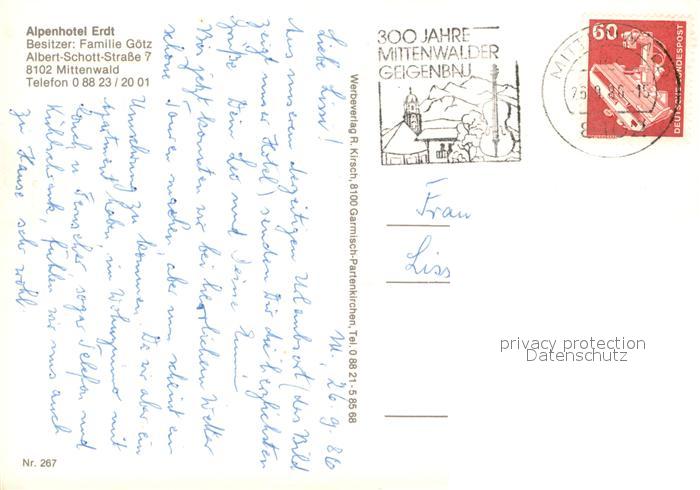 Alpenhotel Erdt
Besitzer: Familie Götz
Albert-Schott-Straße 7
8102 Mittenwald
Telefon 0 88 23 / 20 01
300 JAHRE
MITTENWALDER
GEIGENBAU
60
DEUTSCHE BUNDESPOST
MITTENW
26.9.86-15
810
M., 26.9.86
Liebe Liss!
Aus unserem derzeitigen Urlaubsort (das Bild
zeigt unser Hotel) senden Dir die herzlichsten
Grüße Dein Leo und Deine
Bis jetzt konnten wir bei herrlichem Wetter
schöne Touren machen, aber nun scheint ein
Umschwung zu kommen. Da wir aber ein
Apartment haben, im Wohnzimmer mit
u Fernseher sogar Telefon und
Kühlschrank, fühlen wir uns auch
zu Hause sehr wohl.
Werbeverlag R. Kirsch, 8100 Garmisch-Partenkirchen, Tel. 0 88 21 - 5 85 68
Frau
Liss
privacy protection
Datenschutz
Nr. 267